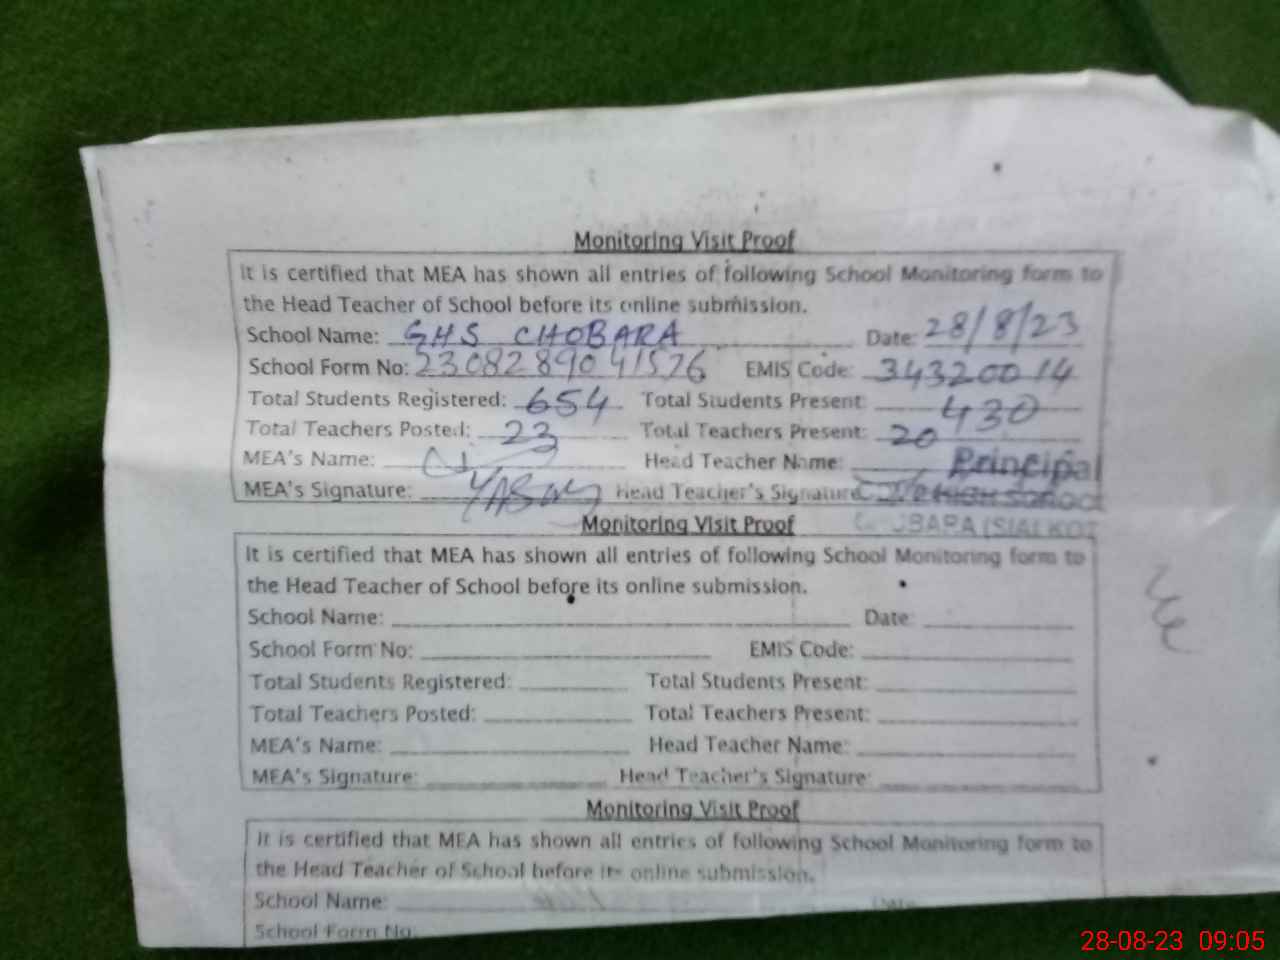 Monitoring Visit Proof
It is certified that MEA has shown all entries of following School Monitoring form to
the Head Teacher of School before its online submission.
School Name: GHS CHOBARA Date: 28/8/23
School Form No: 2308289041576 EMIS Code: 34320014
Total Students Registered: 654 Total Students Present: 430
Total Teachers Posted: 23 Total Teachers Present: 20
MEA's Name: Head Teacher Name: Principal
MEA's Signature: Head Teacher's Signature High School
Monitoring Visit Proof BARA (SIALKOT
It is certified that MEA has shown all entries of following School Monitoring form to
the Head Teacher of School before its online submission.
School Name: Date:
School Form No: EMIS Code:
Total Students Registered: Total Students Present:
Total Teachers Posted: Total Teachers Present:
MEA's Name: Head Teacher Name:
MEA's Signature: Head Teacher's Signature:
Monitoring Visit Proof
It is certified that MEA has shown all entries of following School Monitoring form to
the Head Teacher of School before its online submission.
School Name: Date
School Form No.
28-08-23 09:05